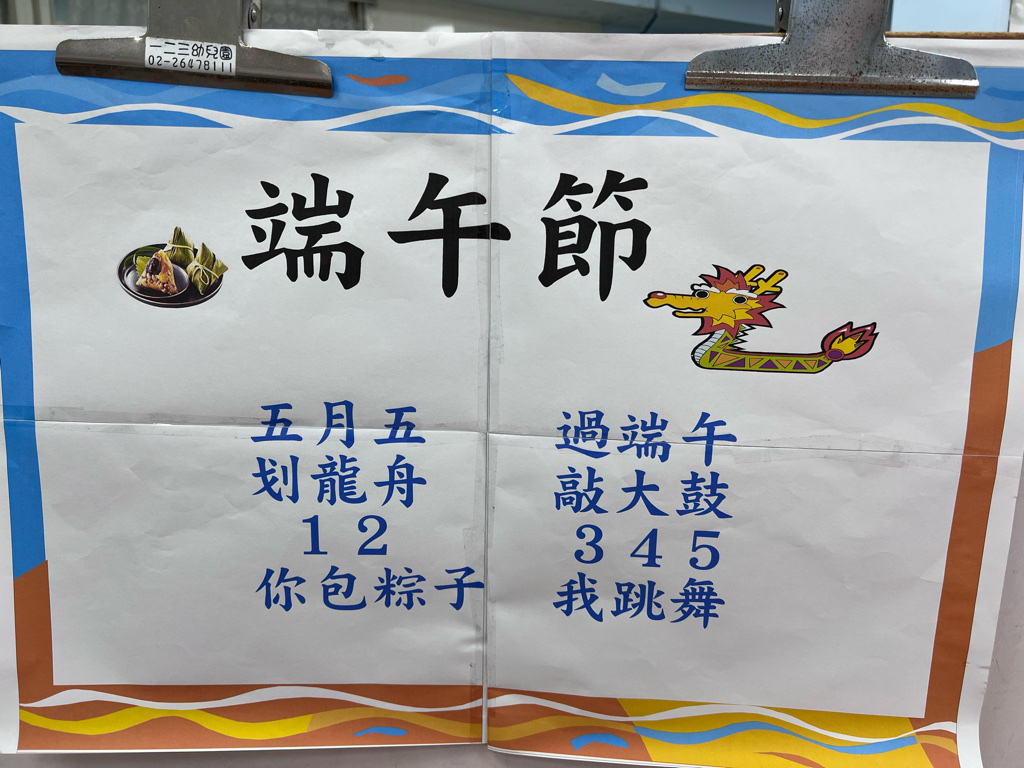 一二三幼兒園
02-26478111
端午節
五月五
划龍舟
12
你包粽子
過端午
敲大鼓
345
我跳舞